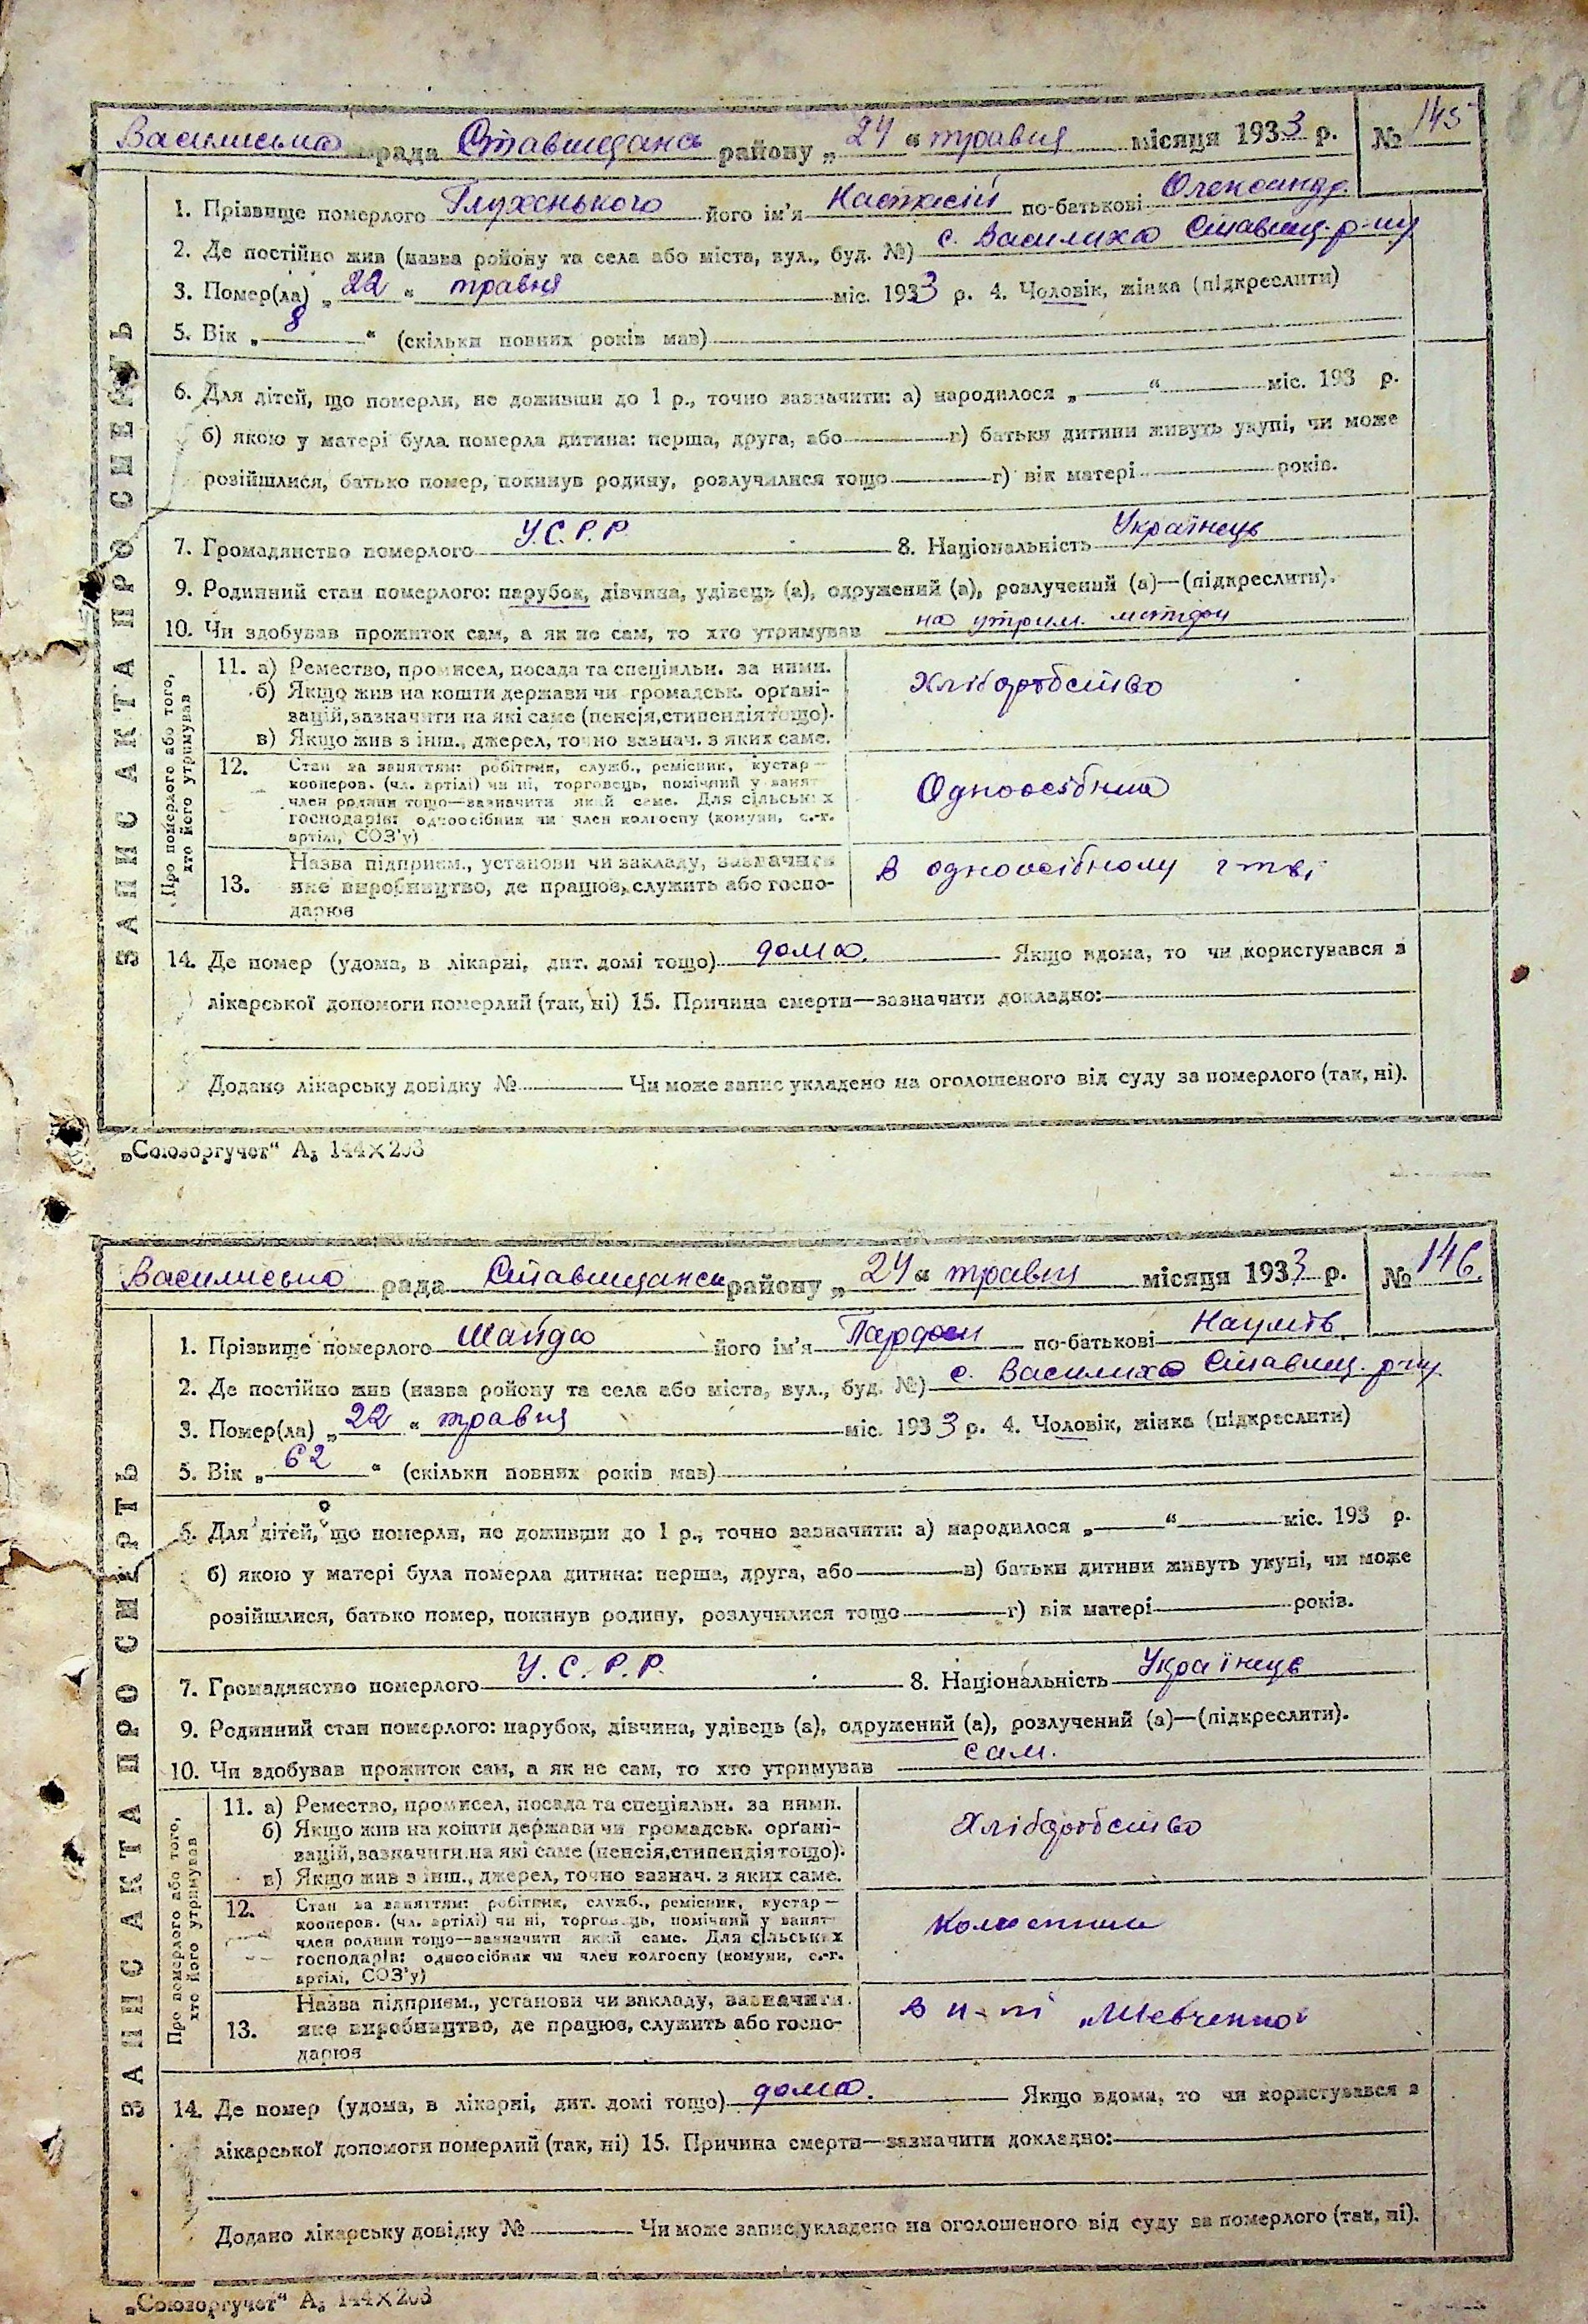 89
Василиська рада Ставищанськ району „ 24 “ травня місяця 1933 р. № 145
1. Прізвище померлого Глухенького його ім'я по-батькові Олександр.
2. Де постійно жив (назва ройону та села або міста, вул., буд. №) с. Василиха Ставищ. р-ну
3. Помер(ла) „ 22 “ травня міс. 1933 р. 4. Чоловік, жінка (підкреслити)
5. Вік „ 8 “ (скільки повних років мав)
6. Для дітей, що померли, не доживши до 1 р., точно зазначити: а) народилося „ “ міс. 193 р.
б) якою у матері була померла дитина: перша, друга, або в) батьки дитини живуть укупі, чи може
розійшлися, батько помер, покинув родину, розлучилися тощо г) вік матері років.
7. Громадянство померлого У.С.Р.Р. 8. Національність Українець
9. Родинний стан померлого: парубок, дівчина, удівець (а), одружений (а), розлучений (а)—(підкреслити).
10. Чи здобував прожиток сам, а як не сам, то хто утримував на утрим.
ЗАПИС АКТА ПРО СМЕРТЬ
Про померлого або того,
хто його утримував
11. а) Ремество, промисел, посада та спеціяльн. за ними.
б) Якщо жив на кошти держави чи громадськ. орґані-
зацій, зазначити на які саме (пенсія, стипендія тощо).
в) Якщо жив з інш., джерел, точно зазнач. з яких саме.
Хліборобство
12. Стан за заняттям: робітник, служб., ремісник, кустар—
кооперов. (чл. артілі) чи ні, торговець, помічний у занят
член родини тощо—зазначити який саме. Для сільських
господарів: одноосібник чи член колгоспу (комуни, с.-г.
артілі, СОЗ'у)
Одноосібник
13. Назва підприєм., установи чи закладу, зазначити
яке виробництво, де працює, служить або госпо-
дарює
В одноосібному г-тві
14. Де помер (удома, в лікарні, дит. домі тощо) дома. Якщо вдома, то чи користувався з
лікарської допомоги померлий (так, ні) 15. Причина смерти—зазначити докладно:
Додано лікарську довідку № Чи може запис укладено на оголошеного від суду за померлого (так, ні).
„Союзоргучет“ А₅ 144×203
Василиська рада Ставищанськ району „ 24 “ травня місяця 1933 р. № 146.
1. Прізвище померлого Шайда його ім'я по-батькові Наумів
2. Де постійно жив (назва ройону та села або міста, вул., буд. №) с. Василиха Ставищ. р-ну.
3. Помер(ла) „ 22 “ травня міс. 1933 р. 4. Чоловік, жінка (підкреслити)
5. Вік „ 62 “ (скільки повних років мав)
6. Для дітей, що померли, не доживши до 1 р., точно зазначити: а) народилося „ “ міс. 193 р.
б) якою у матері була померла дитина: перша, друга, або в) батьки дитини живуть укупі, чи може
розійшлися, батько помер, покинув родину, розлучилися тощо г) вік матері років.
7. Громадянство померлого У.С.Р.Р. 8. Національність Українець
9. Родинний стан померлого: парубок, дівчина, удівець (а), одружений (а), розлучений (а)—(підкреслити).
10. Чи здобував прожиток сам, а як не сам, то хто утримував сам.
ЗАПИС АКТА ПРО СМЕРТЬ
Про померлого або того,
хто його утримував
11. а) Ремество, промисел, посада та спеціяльн. за ними.
б) Якщо жив на кошти держави чи громадськ. орґані-
зацій, зазначити на які саме (пенсія, стипендія тощо).
в) Якщо жив з інш., джерел, точно зазнач. з яких саме.
Хліборобство
12. Стан за заняттям: робітник, служб., ремісник, кустар—
кооперов. (чл. артілі) чи ні, торговець, помічний у занят
член родини тощо—зазначити який саме. Для сільських
господарів: одноосібник чи член колгоспу (комуни, с.-г.
артілі, СОЗ'у)
Колгоспник
13. Назва підприєм., установи чи закладу, зазначити
яке виробництво, де працює, служить або госпо-
дарює
В к-пі „Шевченко“
14. Де помер (удома, в лікарні, дит. домі тощо) дома. Якщо вдома, то чи користувався з
лікарської допомоги померлий (так, ні) 15. Причина смерти—зазначити докладно:
Додано лікарську довідку № Чи може запис укладено на оголошеного від суду за померлого (так, ні).
„Союзоргучет“ А₅ 144×203